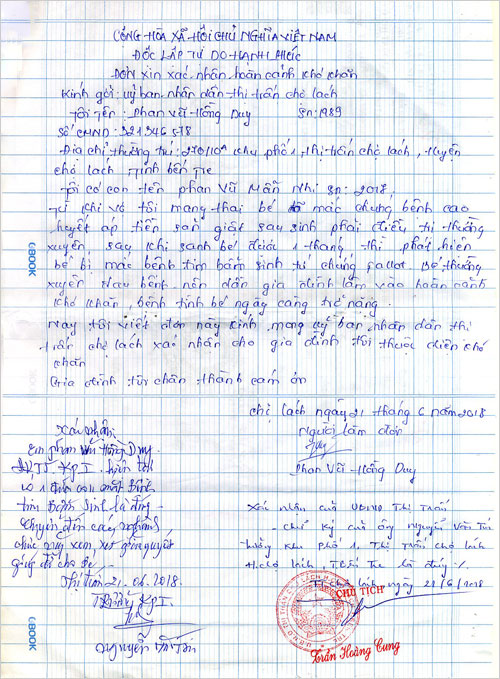 CỘNG HÒA XÃ HỘI CHỦ NGHĨA VIỆT NAM
ĐỘC LẬP TỰ DO HẠNH PHÚC
ĐƠN xin xác nhận hoàn cảnh khó khăn
Kính gởi: uỷ ban nhân dân thị trấn chợ lách
Tôi tên: Phan Vũ Hồng Duy Sn: 1989
Số CMND: 321346578
Địa chỉ thường trú: 270/10A khu phố 1, thị trấn chợ lách, Huyện
chợ lách Tỉnh bến tre
Tôi có con tên phan Vũ Mẫn Nhi Sn: 2018.
Từ khi vợ tôi mang thai bé mắc chứng bệnh cao
huyết áp tiền sản giật sau sinh phải điều trị thường
xuyên, sau khi sanh bé được 1 tháng thì phát hiện
bé bị mắc bệnh tim bẩm sinh tứ chứng fallot. Bé thường
xuyên đau bệnh nên dẫn gia đình lâm vào hoàn cảnh
khó khăn, bệnh tình bé ngày càng trở nặng.
Nay tôi viết đơn này kính mong uỷ ban nhân dân thị
trấn chợ lách xác nhận cho gia đình tôi thuộc diện khó
khăn
Gia đình tôi chân thành cám ơn
chợ lách ngày 21 tháng 6 năm 2018
Người làm đơn
Duy
Phan Vũ Hồng Duy
Xác nhận
Em phan Vũ Hồng Duy
KP.I. hiện tại
có 1 đứa con mắt bệnh
tim Bẩm Sinh là đúng
chuyển đến các nghành
chức năng xem xét giải quyết
giúp đỡ cho bé
Thị trấn 21-06-2018.
KPI.
Nguyễn Văn Tấn
Xác nhận của UBND Thị Trấn
- chữ ký của ông Nguyễn Văn Tấn
trưởng khu phố 1, Thị Trấn chợ lách
H. chợ lách, T. Bến Tre là đúng ./.
ngày 21/6/2018
CHỦ TỊCH
Trần Hoàng Cung
GBOOK
GBOOK